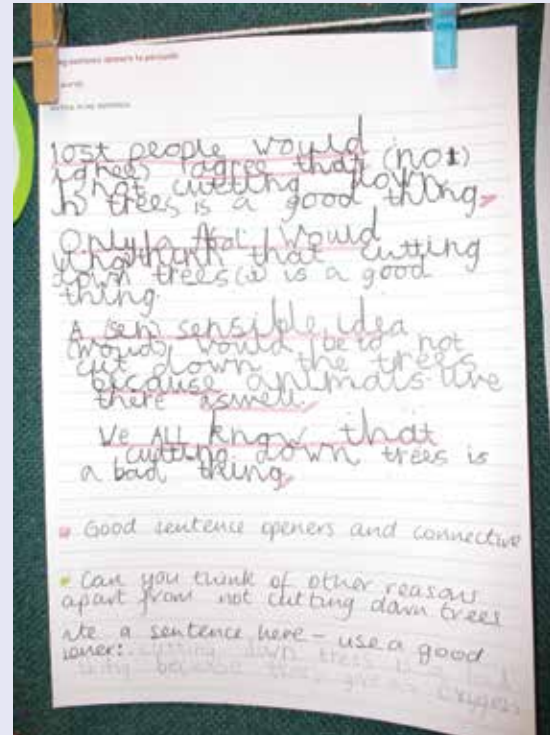 sentence openers to persuade
lost people would
(agree) agree that (not)
not cutting down
trees is a good thing.
Only a fool would
think that cutting
down trees (is) is a good
thing.
A (sen) sensible idea
(would) would be to not
cut down the trees
because animals live
there aswell.
We ALL know that
cutting down trees is
a bad thing.
Good sentence openers and connective
Can you think of other reasons
apart from not cutting down trees
ite a sentence here - use a good
pener: cutting down trees is a bad
thing because trees give us oxygen